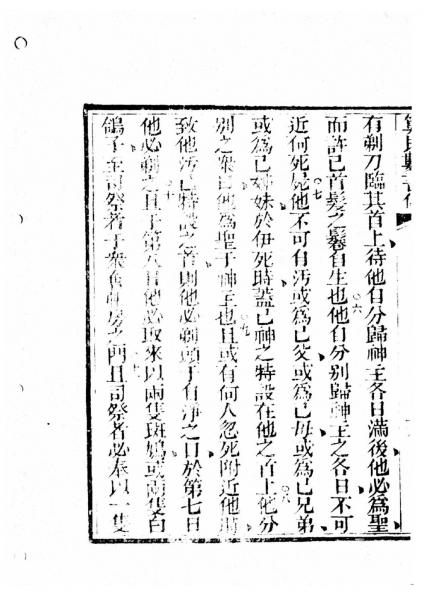 有剃刀臨其首上待他自分歸神主各日滿後他必為聖
而許己首髮之鬈自生也他自分別歸神主之各日不可
近何死屍他不可自污或為己父或為己母或為己兄弟
或為己姊妹於伊死時蓋己神之特設在他之首上他分
別之衆日他為聖于神主也且或有何人忽死附近他
致他污己特設之首則他必剃頭于自淨之日於第七日
他必剃之且于第八日他必取來以兩隻斑鳩或兩隻白
鴿子至司祭者于衆會帳房之門且司祭者必奉以一隻